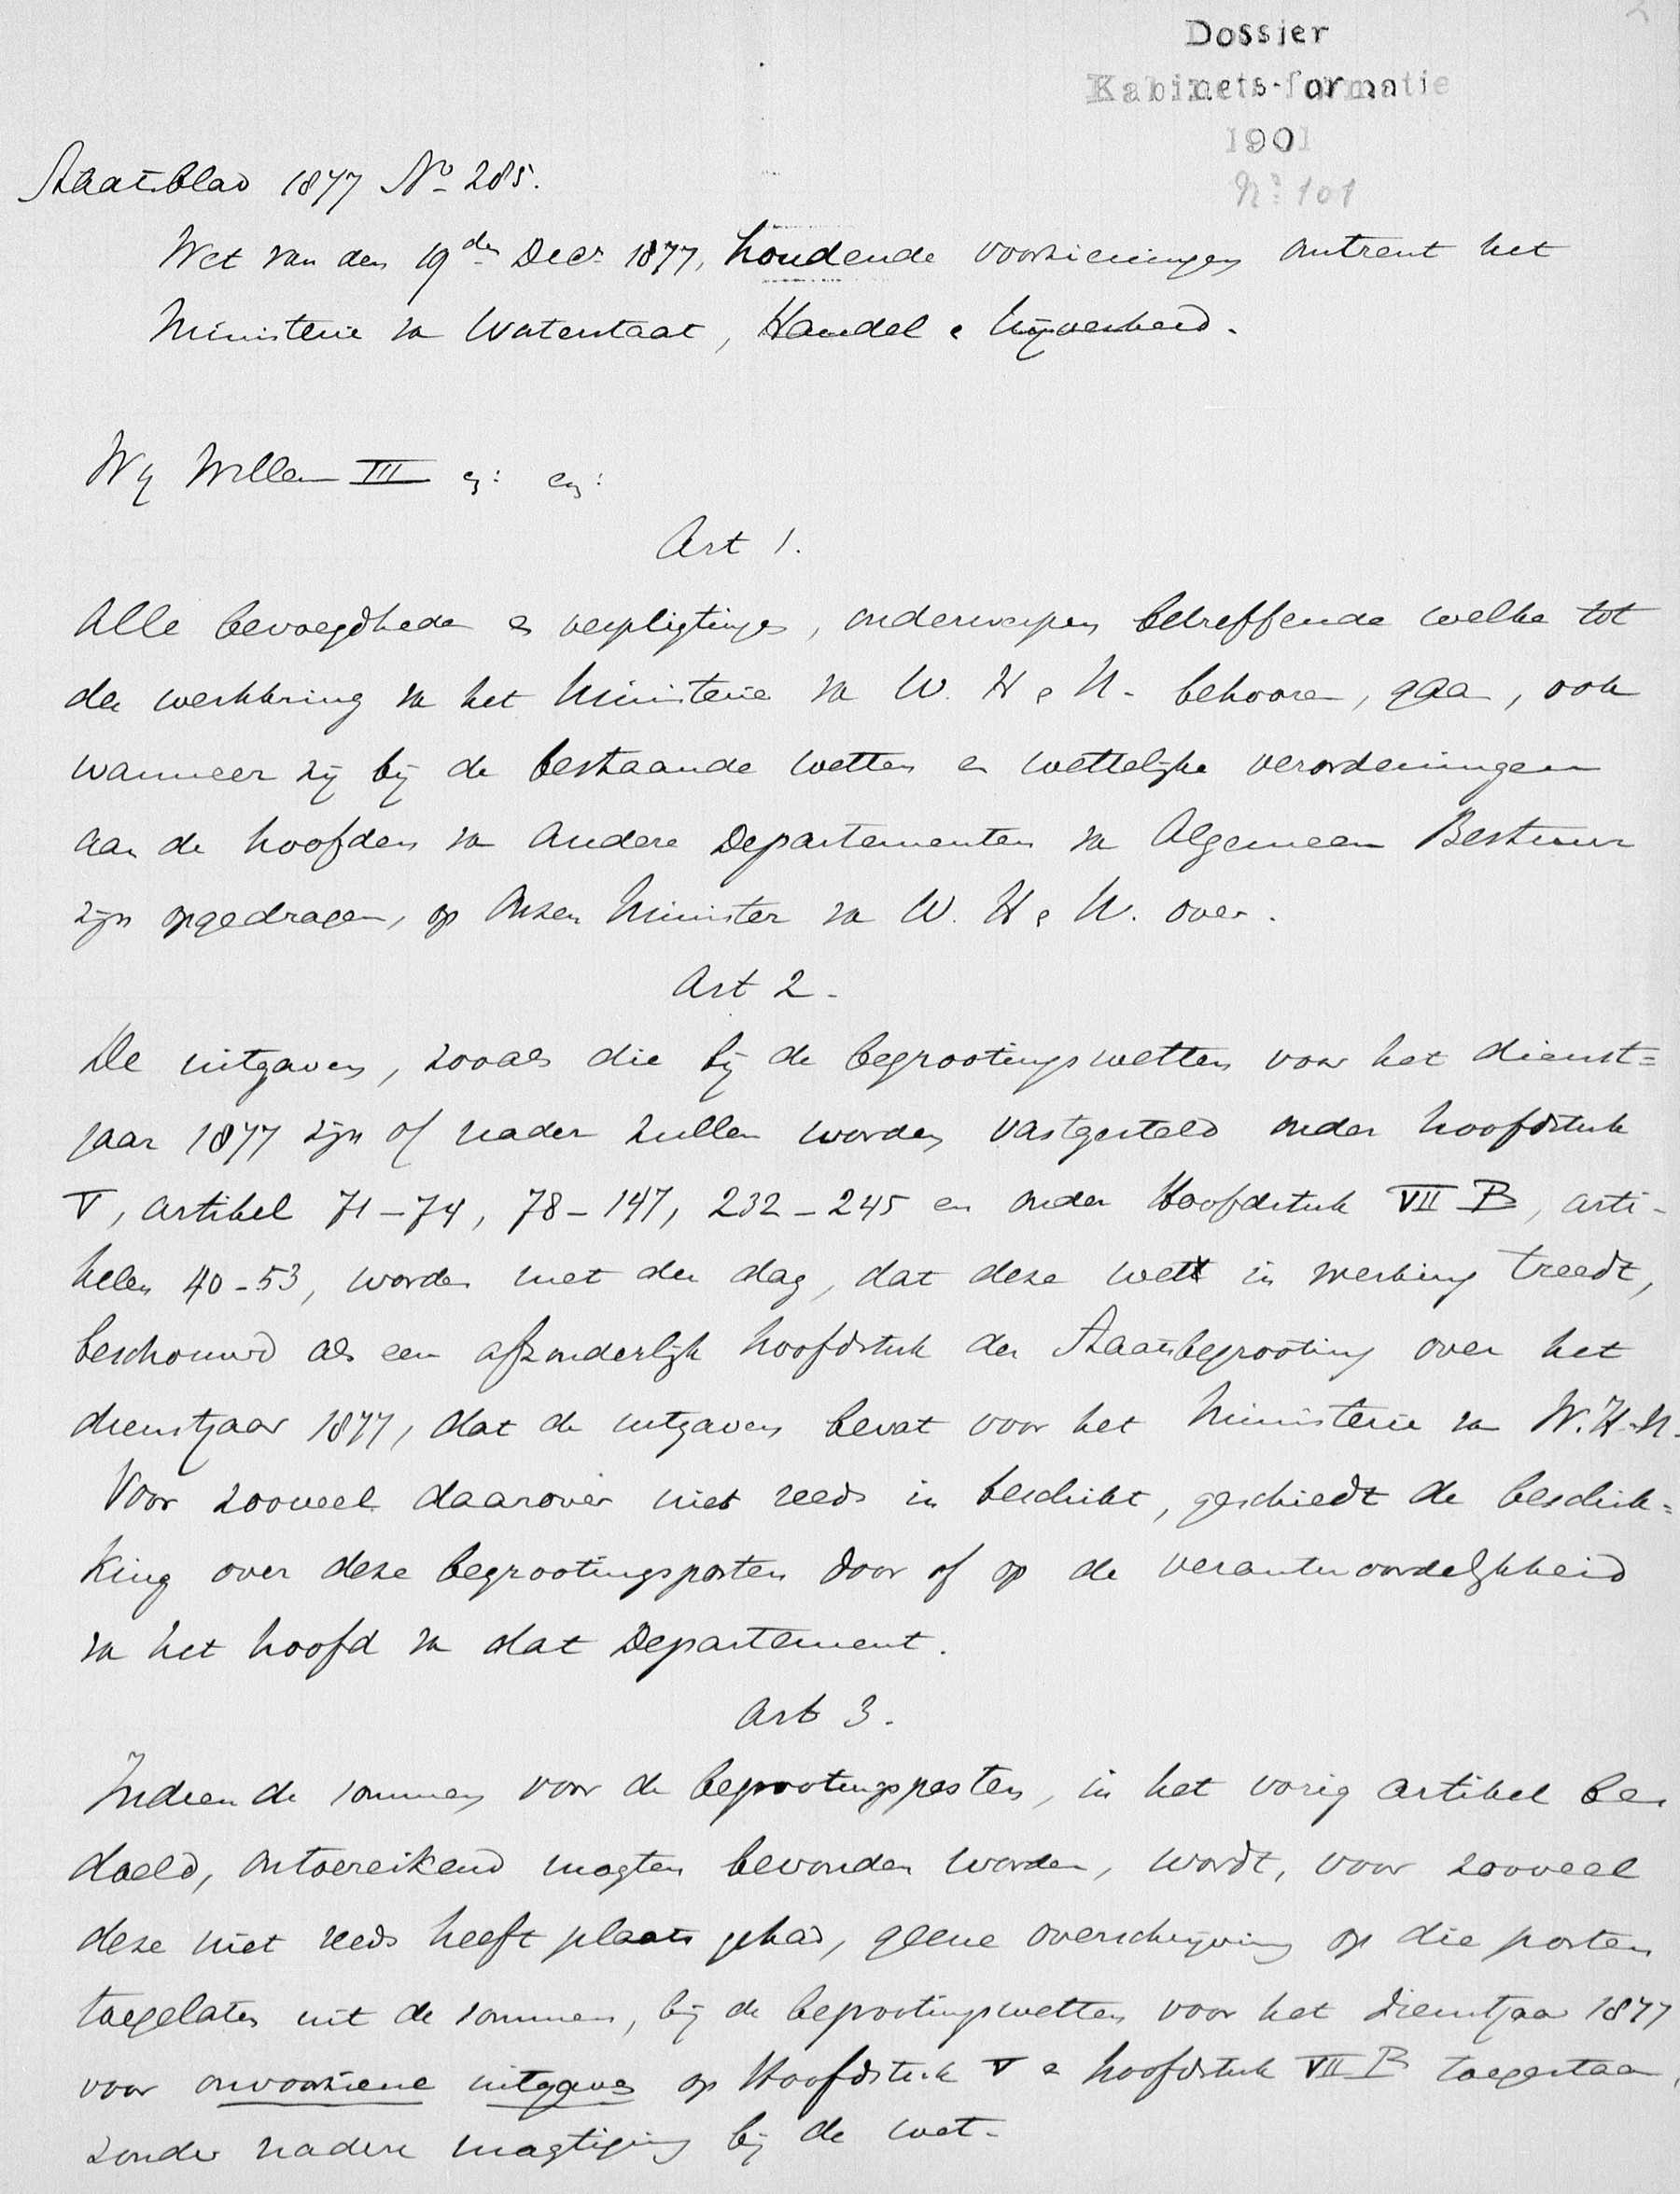 Dossier
Kabinets-formatie
1901
No 101
Staatsblad 1877 No 285.
Wet van den 19den Decr 1877, houdende voorzieningen omtrent het
Ministerie va Waterstaat, Handel e Nijverheid.
Wij Willem III enz: enz:
Art 1.
Alle bevoegdheden en verpligtingen, onderwerpen betreffende welke tot
den werkkring va het Ministerie va W. H e N. behooren, gaan, ook
wanneer zij bij de bestaande wetten en wettelijke verordeningen
aan de hoofden va andere Departementen va Algemeen Bestuur
zijn opgedragen, op Onzen Minister va W. H e N. over.
Art 2.
De uitgaven, zooals die bij de begrootingswetten voor het dienst=
jaar 1877 zijn of nader zullen worden vastgesteld onder hoofdstuk
V, artikel 71-74, 78-147, 232-245 en onder Hoofdstuk VII B, arti-
kelen 40-53, worden met den dag, dat deze wet in werking treedt,
beschouwd als een afzonderlijk hoofdstuk der Staatsbegrooting over het
dienstjaar 1877, dat de uitgaven bevat voor het Ministerie va W.H.N.
Voor zooveel daarover niet reeds is beschikt, geschiedt de beschik=
king over deze begrootingsposten door of op de verantwoordelijkheid
va het hoofd va dat Departement.
Art 3.
Indien de sommen voor de begrootingsposten, in het vorig artikel be-
doeld, ontoereikend mogten bevonden worden, wordt, voor zooveel
deze niet reeds heeft plaats gehad, geene overschrijving op die posten
toegelaten uit de sommen, bij de begrootingswetten voor het dienstjaar 1877
voor onvoorziene uitgaven op Hoofdstuk V e hoofdstuk VII B toegestaan,
zonder nadere magtiging bij de wet.